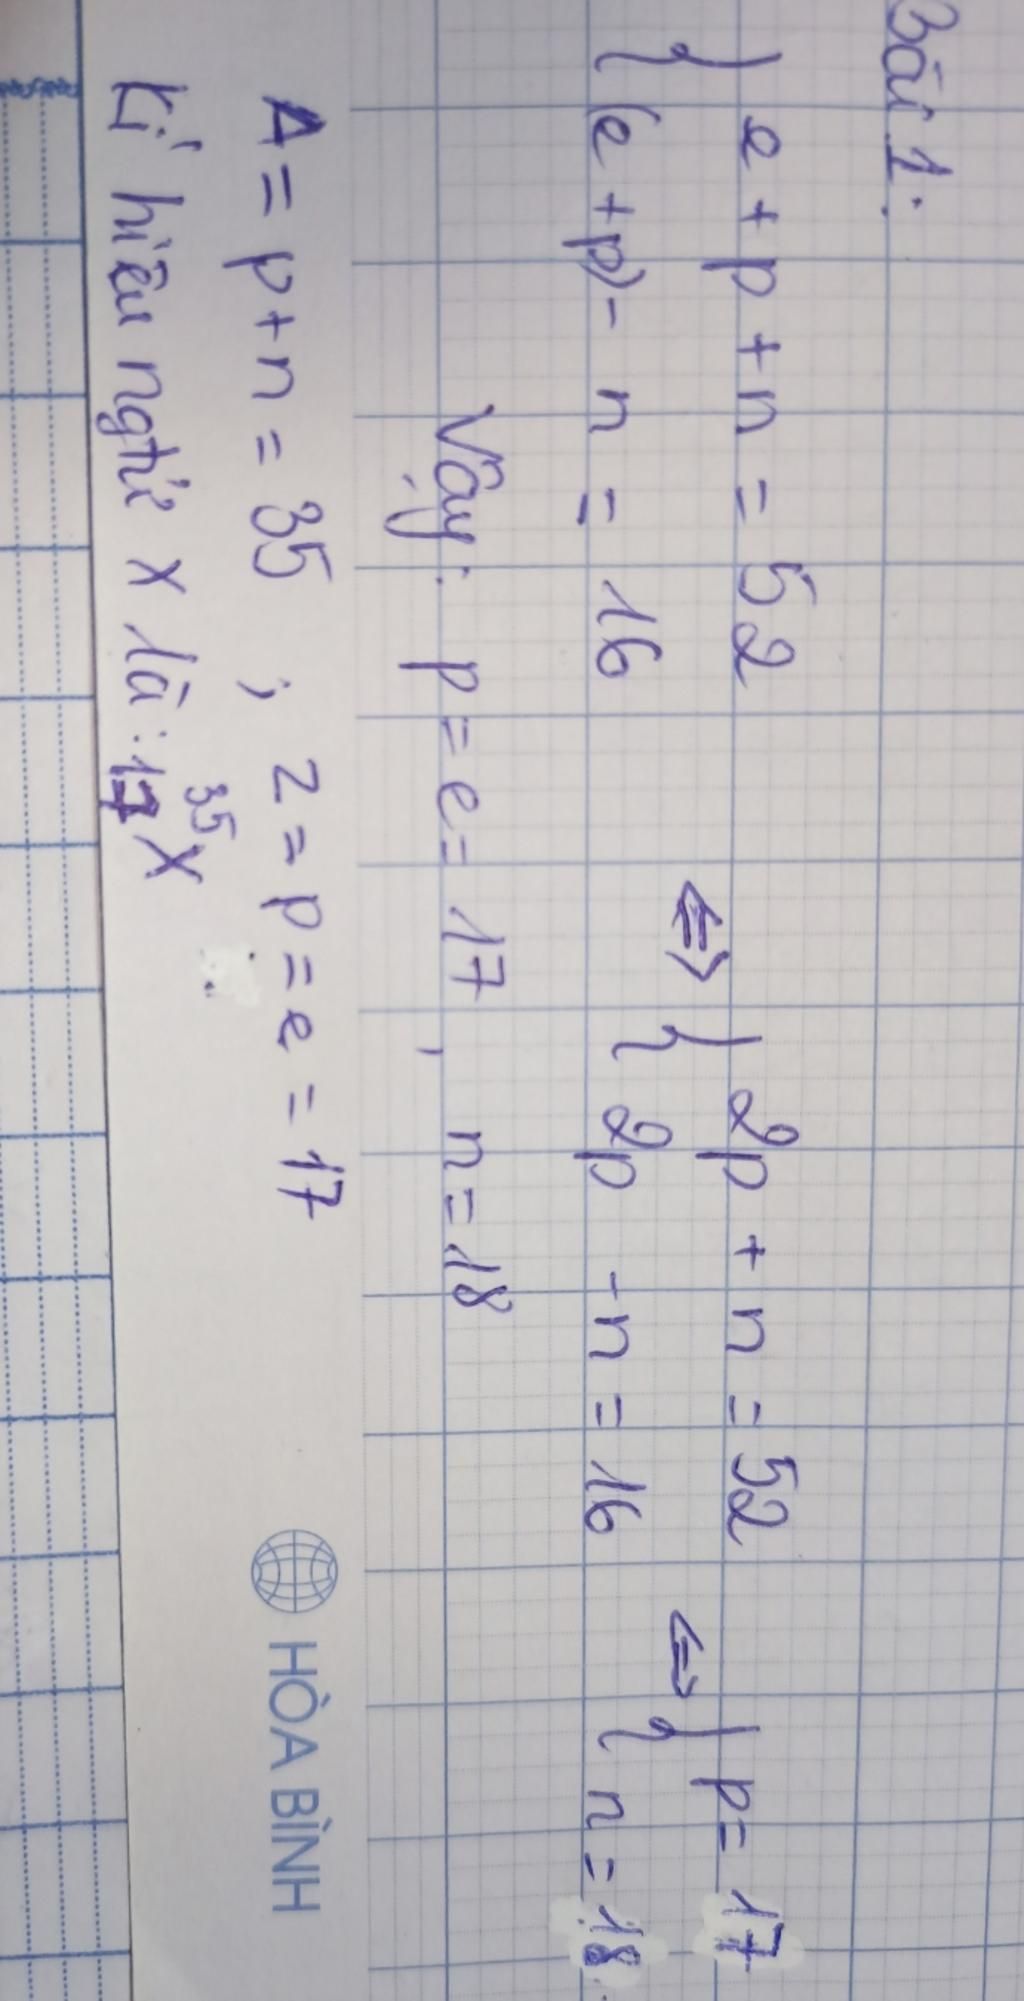 Bài 1:
{ e + p + n = 52 ⇔ { 2p + n = 52 ⇔ { p = 17
{ (e + p) - n = 16 { 2p - n = 16 { n = 18
Vậy: p = e = 17, n = 18
A = p + n = 35 ; Z = p = e = 17
Kí hiêu ngtử X là: ³⁵₁₇X
HÒA BÌNH